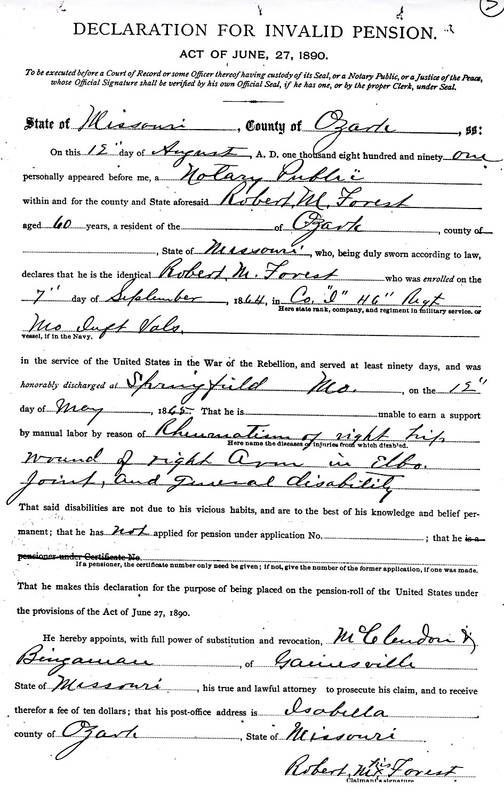 3
DECLARATION FOR INVALID PENSION.
ACT OF JUNE, 27, 1890.
To be executed before a Court of Record or some Officer thereof having custody of its Seal, or a Notary Public, or a Justice of the Peace,
whose Official Signature shall be verified by his own Official Seal, if he has one, or by the proper Clerk, under Seal.
State of Missouri, County of Ozark, ss:
On this 12" day of August, A. D. one thousand eight hundred and ninety one
personally appeared before me, a Notary Public
within and for the county and State aforesaid Robert M. Forest
aged 60 years, a resident of the of Ozark, county of
, State of Missouri, who, being duly sworn according to law,
declares that he is the identical Robert M. Forest who was enrolled on the
7" day of September, 1864, in Co. "I" 46" Regt
Here state rank, company, and regiment in military service, or
Mo Inft Vols.
vessel, if in the Navy.
in the service of the United States in the War of the Rebellion, and served at least ninety days, and was
honorably discharged at Springfield Mo., on the 12"
day of May, 1865. That he is unable to earn a support
by manual labor by reason of Rheumatism of right hip
Here name the diseases or injuries from which disabled.
wound of right Arm in Elbo.
Joint, and general disability
That said disabilities are not due to his vicious habits, and are to the best of his knowledge and belief per-
manent; that he has not applied for pension under application No. ; that he is a
pensioner under Certificate No.
If a pensioner, the certificate number only need be given; if not, give the number of the former application, if one was made.
That he makes this declaration for the purpose of being placed on the pension-roll of the United States under
the provisions of the Act of June 27, 1890.
He hereby appoints, with full power of substitution and revocation, McClendon &
Bingaman, of Gainesville
State of Missouri, his true and lawful attorney to prosecute his claim, and to receive
therefor a fee of ten dollars; that his post-office address is Isabella
county of Ozark, State of Missouri
his
Robert M x Forest
Claimant's signature